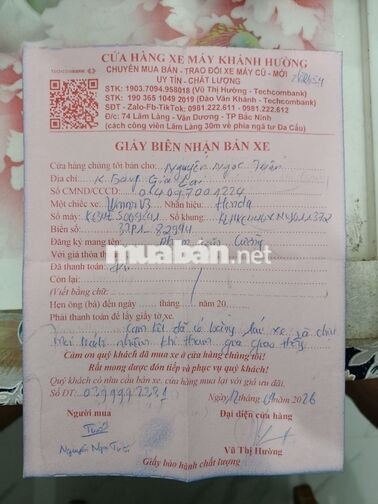 CỬA HÀNG XE MÁY KHÁNH HƯỜNG
TECHCOMBANK
CHUYÊN MUA BÁN - TRAO ĐỔI XE MÁY CŨ - MỚI
UY TÍN - CHẤT LƯỢNG
STK: 1903.7094.958018 (Vũ Thị Hường - Techcombank)
STK: 190 365 1049 2019 (Đào Văn Khánh - Techcombank)
SĐT - Zalo-Fb-TikTok: 0981.222.611 - 0981.222.612
Đ/c: 74 Lãm Làng - Vân Dương - TP Bắc Ninh
(cách công viên Lãm Làng 30m về phía ngã tư Đa Cấu)
GIẤY BIÊN NHẬN BÁN XE
Cửa hàng chúng tôi bán cho: Nguyễn Ngọc Tuấn
Địa chỉ: Gia Lai
Số CMND/CCCD:
Một chiếc xe: Winner Nhãn hiệu: Honda
Số máy: Số khung:
Biển số: 37P1-82994
Đăng ký mang tên: Cường
Với giá thỏa
muaban.net
Đã thanh toán:
Còn lại:
Viết bằng chữ:
Hẹn ông (bà) đến ngày tháng năm 20
Phải thanh toán để lấy giấy tờ xe.
Cam kết đã có bằng lái xe và chịu
mọi trách nhiệm khi tham gia giao thông
Cám ơn quý khách đã mua xe ở cửa hàng chúng tôi!
Rất mong được đón tiếp và phục vụ quý khách!
Quý khách có nhu cầu bán xe, cửa hàng mua lại với giá ưu đãi.
Số ĐT: Ngày 2026
Người mua Đại diện cửa hàng
Nguyễn Ngọc Tuấn
Vũ Thị Hường
Giấy bảo hành chất lượng